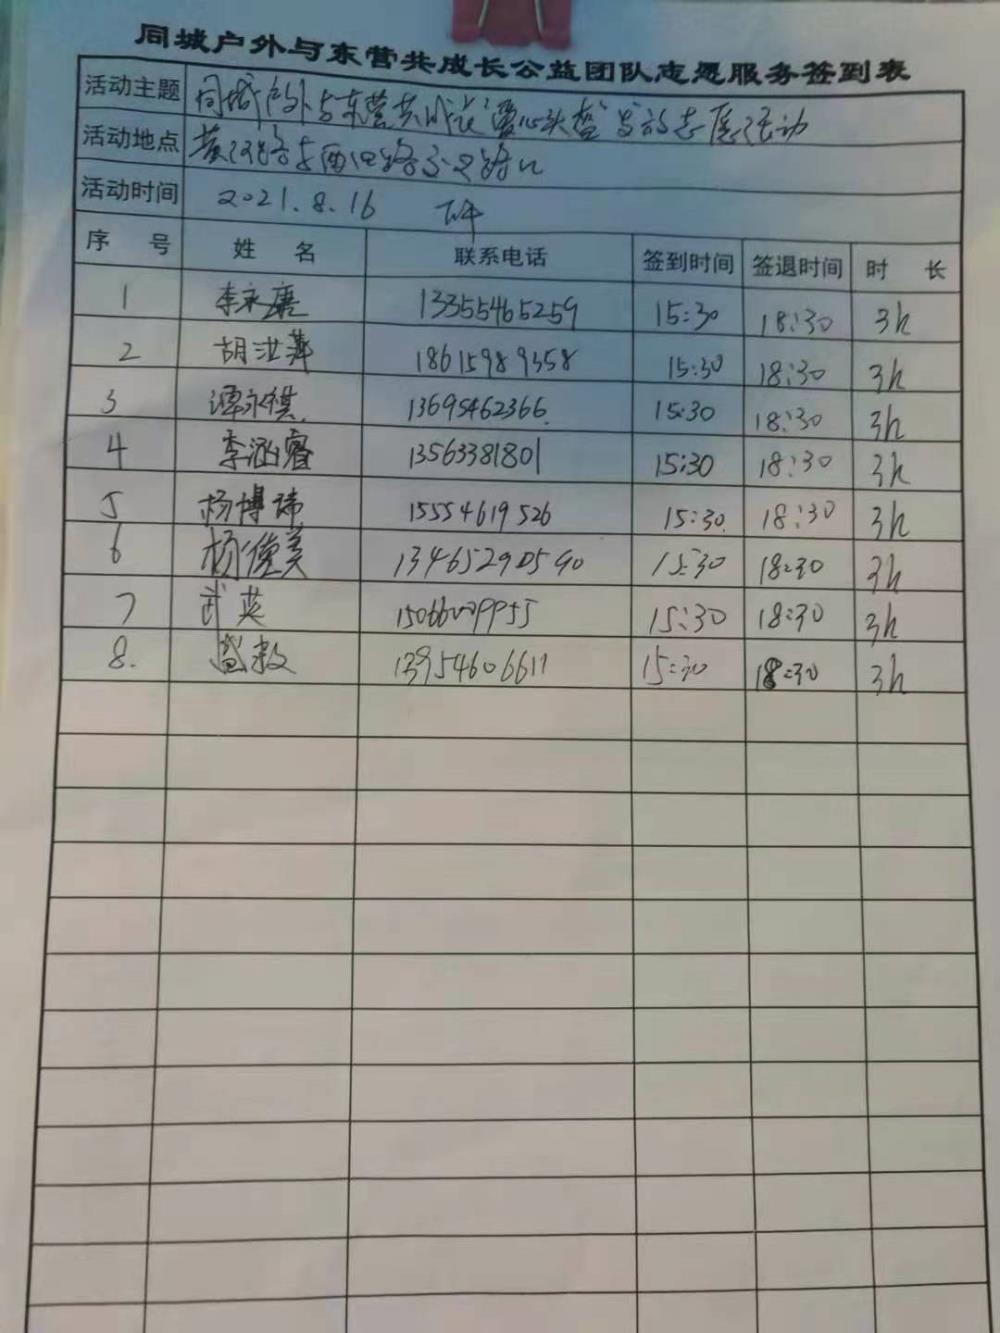 同城户外与东营共成长公益团队志愿服务签到表
活动主题 同城户外与东营共成长"爱心头盔"发放志愿活动
活动地点 黄河路与西四路交叉路口
活动时间 2021.8.16 下午
序号 姓名 联系电话 签到时间 签退时间 时长
1 李永 13355465259 15:30 18:30 3h
2 胡 18615989358 15:30 18:30 3h
3 谭永祺 13695462366 15:30 18:30 3h
4 李涵睿 13563381801 15:30 18:30 3h
5 杨博 15554619526 15:30 18:30 3h
6 杨俊美 13465290590 15:30 18:30 3h
7 武英 15:30 18:30 3h
8. 13954606611 15:30 18:30 3h